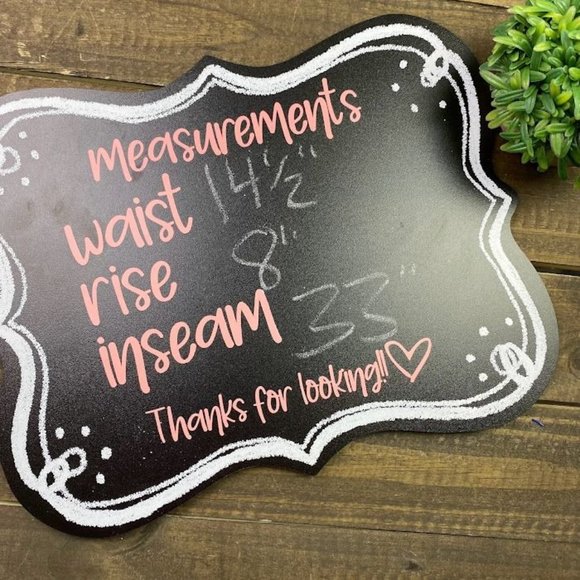 measurements
waist 14 1/2"
rise 8"
inseam 33"
Thanks for looking!!